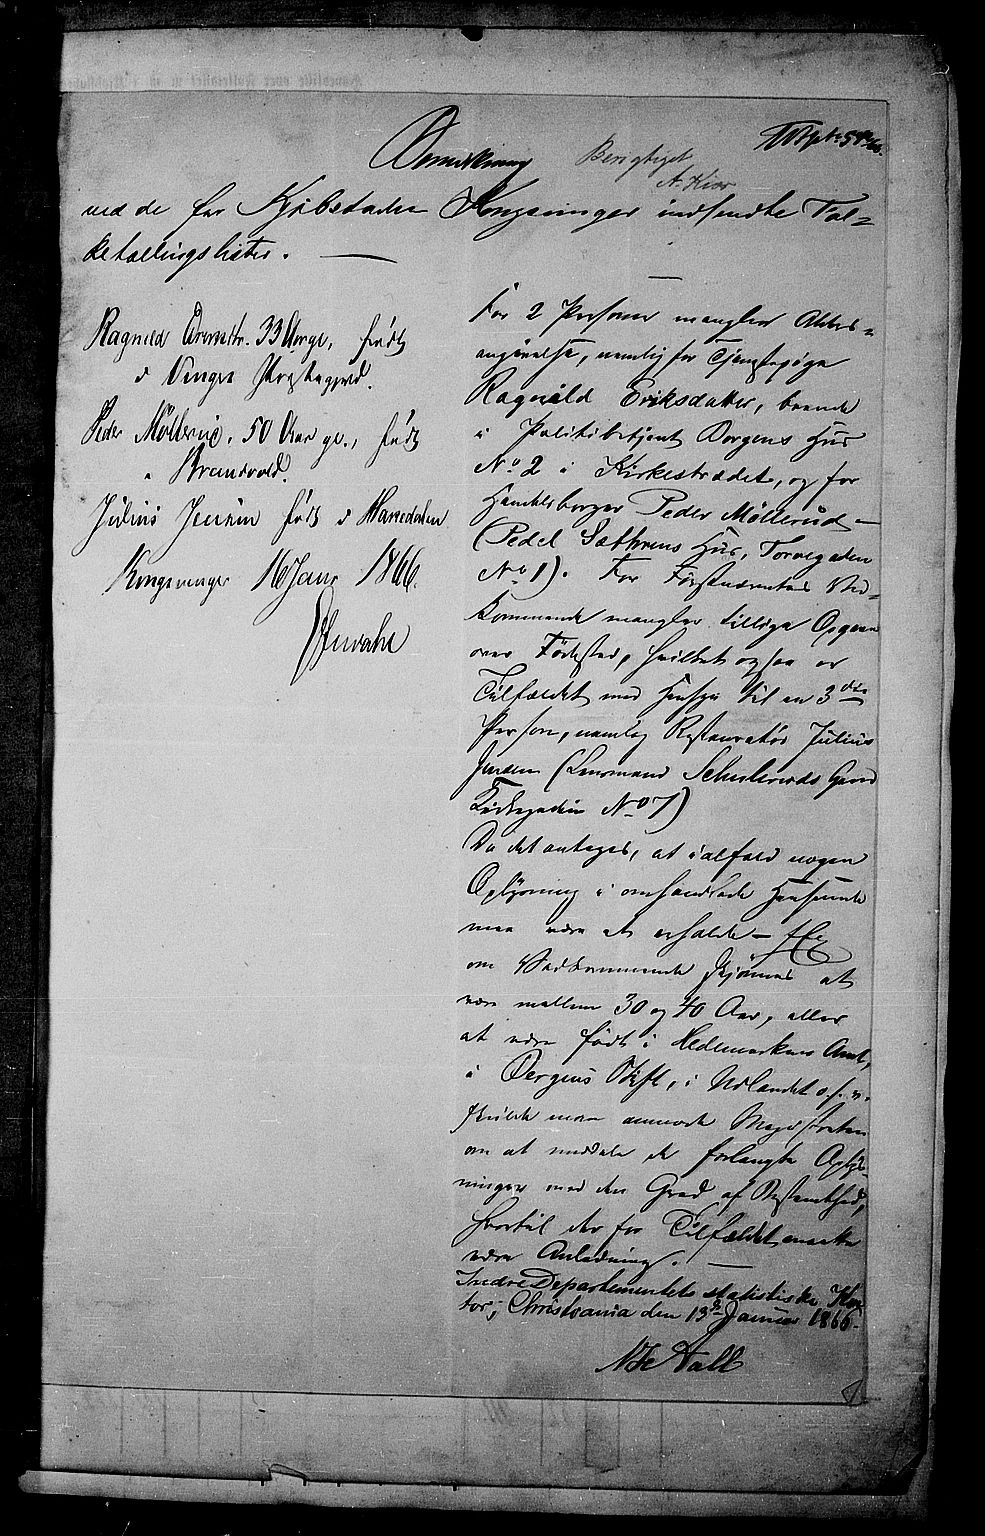 Anmerkning
Berigtiget
A. Kiær
ved de for Kjøbstaden Kongsvinger indsendte Fol-
ketællingslister. —
Ragnild 33 Aar gl., født
i Vinger Præstegjeld.
Peder Møllerud, 50 Aar gl., født
i Brandvold.
Julius Jensen født i
Kongsvinger 16 Janr 1866.
For 2 Personer mangler Alders-
angivelse, nemlig for Tjenestepige
Ragnild Eriksdatter, boende
i Politibetjent Borgens Hus
No 2 i Kirkestrædet, og for
Handelsborger Peder Møllerud
(Pedel Sæthrens Hus, Torvegaden
No 1). For Førstnævntes Ved-
kommende mangler tillige Opgave
over Fødested, hvilket ogsaa er
Tilfældet med Hensyn til en 3die
Person, nemlig Restauratør Julius
Jensen (Lensmand Schuleruds Gaard
Kirkegaden No 7)
Da det antages, at ialfald nogen
Oplysning i omhandlede Henseende
maa være at erholde — f. Ex.
om Vedkommende skjønnes at
være mellem 30 og 40 Aar, eller
at være født i Hedemarkens Amt,
i Bergens Stift, i Udlandet o. s. v.
skulde man anmode Magistraten
om at meddele de forlangte Oplys-
ninger med den Grad af Bestemthed,
hvortil der for Tilfældet maatte
være Anledning. —
Indredepartementets statistiske Kon-
tor, Christiania den 13de Januar 1866.